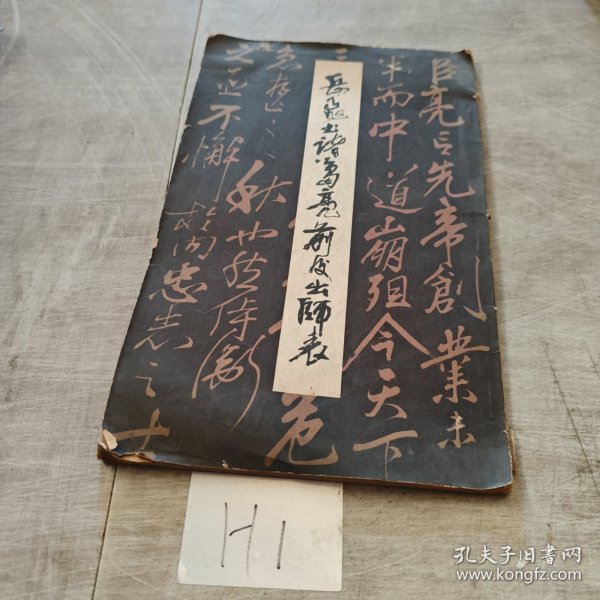 臣亮言先帝創業未
半而中道崩殂今天下
三
危
急存
秋也然侍衛
之臣不懈
於內忠志之士
岳飛書諸葛亮前後出師表
H1
孔夫子旧书网
www.kongfz.com